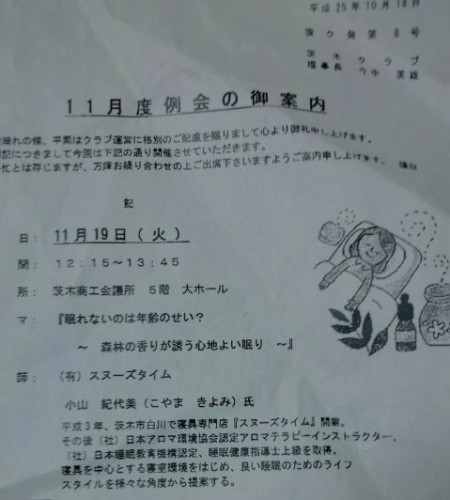 平成25年10月18日
茨ク発第8号
茨木クラブ
理事長 今中 美雄
11月度例会の御案内
霜降れの候、平素はクラブ運営に格別のご配慮を賜りまして心より御礼申し上げます。
記につきまして今回は下記の通り開催させていただきます。
忙とは存じますが、万障お繰り合わせの上ご出席下さいますようご案内申し上げます。
記
日： 11月19日（火）
間： 12：15～13：45
所： 茨木商工会議所 5階 大ホール
マ： 『眠れないのは年齢のせい？
～ 森林の香りが誘う心地よい眠り ～』
師： （有）スヌーズタイム
小山 紀代美（こやま きよみ）氏
平成3年、茨木市白川で寝具専門店『スヌーズタイム』開業。
その後（社）日本アロマ環境協会認定アロマテラピーインストラクター、
（社）日本睡眠教育機構認定、睡眠健康指導士上級を取得。
寝具を中心とする寝室環境をはじめ、良い睡眠のためのライフ
スタイルを様々な角度から提案する。